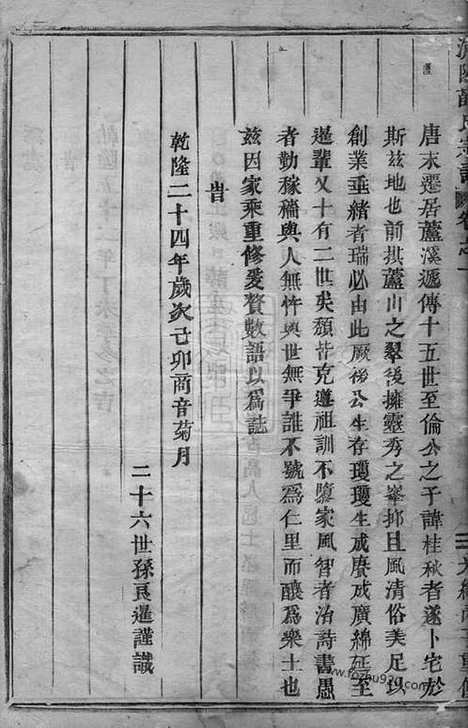 唐末遷居蘆溪遞傳十五世至倫公之子諱桂秋者遂卜宅於
斯兹地也前拱蘆山之翠後擁靈秀之峯抑且風清俗美足以
創業垂緒者瑞必由此厥後公生存瓊瓊生成賡成廣綿延至
暹輩又十有二世矣頹皆克遵祖訓不墮家風智者治詩書愚
者勤稼穡與人無忤與世無爭誰不號為仁里而釀為樂土也
兹因家乘重修爰贅數語以為誌
旹
乾隆二十四年歲次己卯商音菊月
二十六世孫良暹謹識
www.fozhu920.com